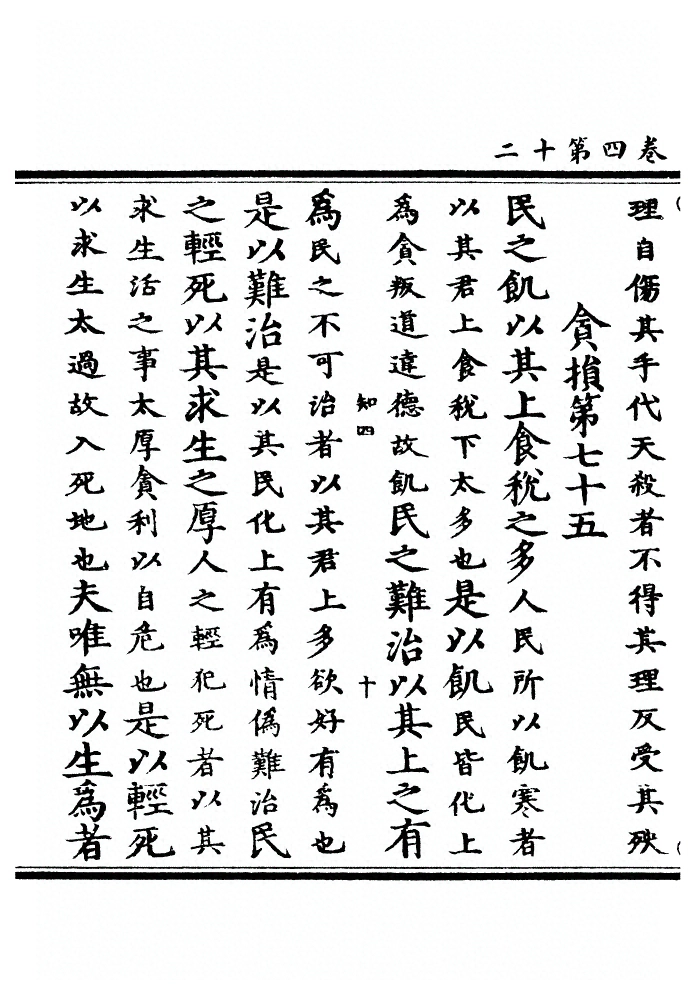 卷四第十二
理自傷其手代天殺者不得其理反受其殃
貪損第七十五
民之飢以其上食稅之多人民所以飢寒者
以其君上食稅下太多也是以飢民皆化上
為貪叛道違德故飢民之難治以其上之有
知四
十
為民之不可治者以其君上多欲好有為也
是以難治是以其民化上有為情偽難治民
之輕死以其求生之厚人之輕犯死者以其
求生活之事太厚貪利以自危也是以輕死
以求生太過故入死地也夫唯無以生為者